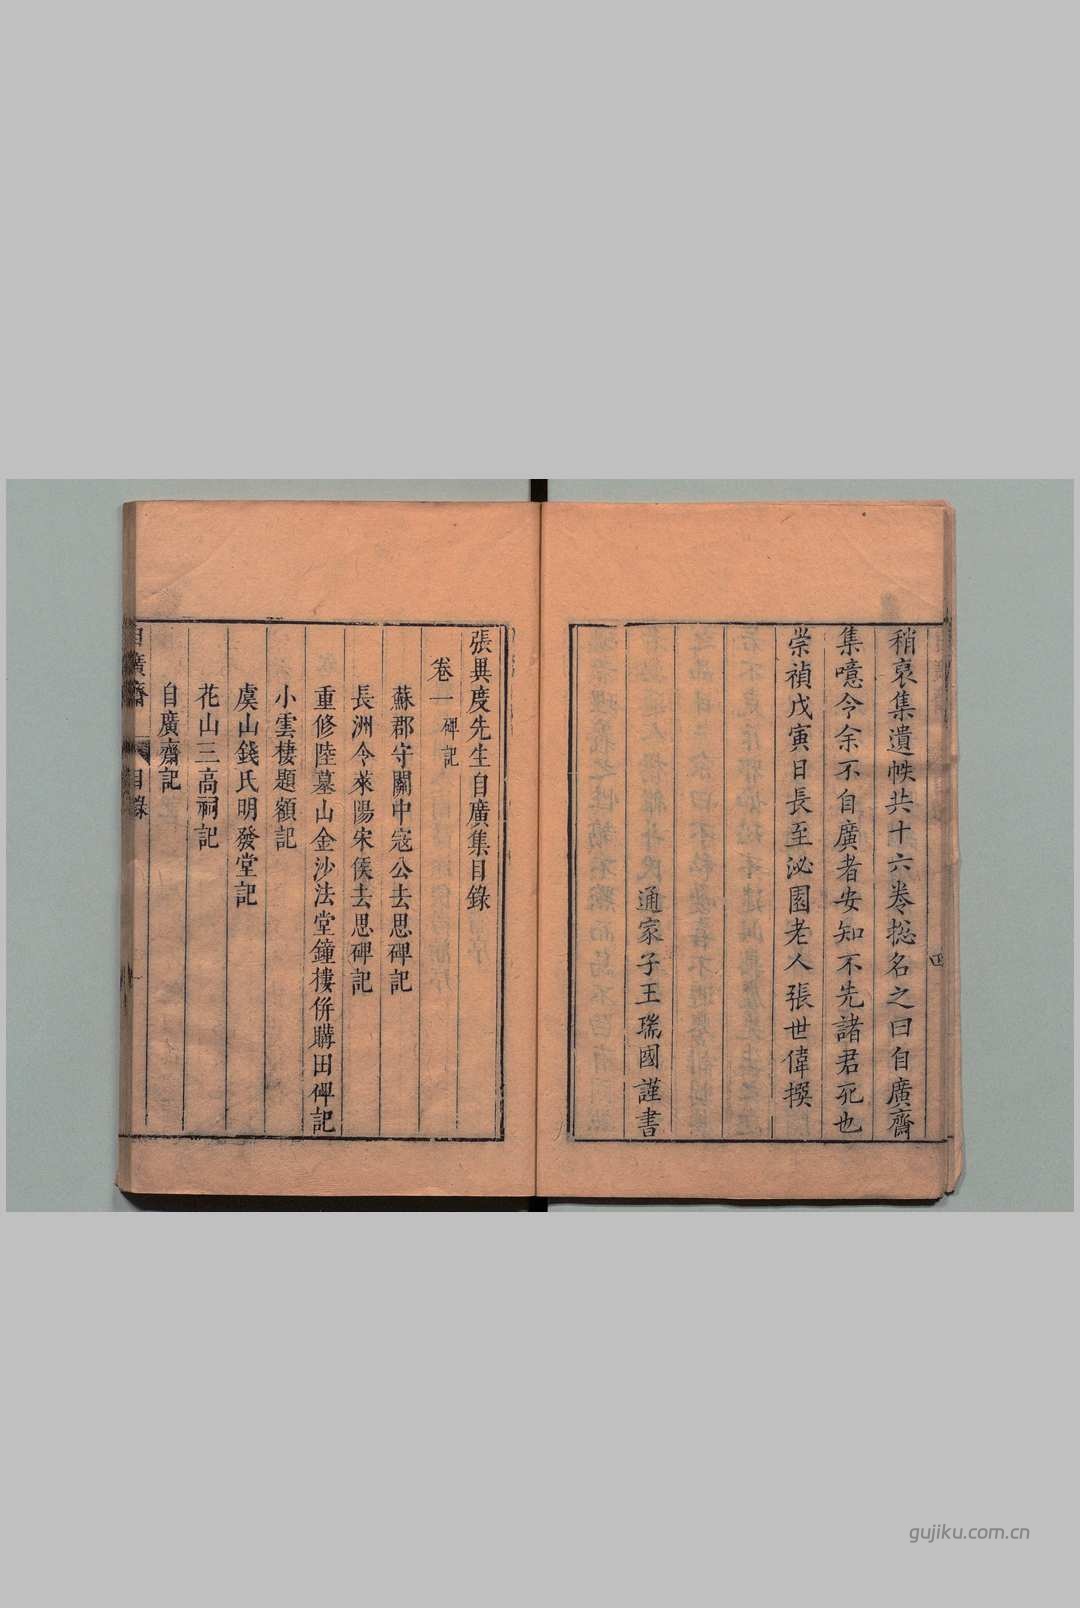 稍裒集遺帙共十六卷捴名之曰自廣齋
集噫令余不自廣者安知不先諸君死也
崇禎戊寅日長至泌園老人張世偉撰
通家子王瑞國謹書
四
張異度先生自廣集目錄
卷一 碑記
蘇郡守關中寇公去思碑記
長洲令萊陽宋侯去思碑記
重修陸墓山金沙法堂鐘樓併購田碑記
小雲棲題額記
虞山錢氏明發堂記
花山三高祠記
自廣齋記
自廣齋 目錄 一
gujiku.com.cn